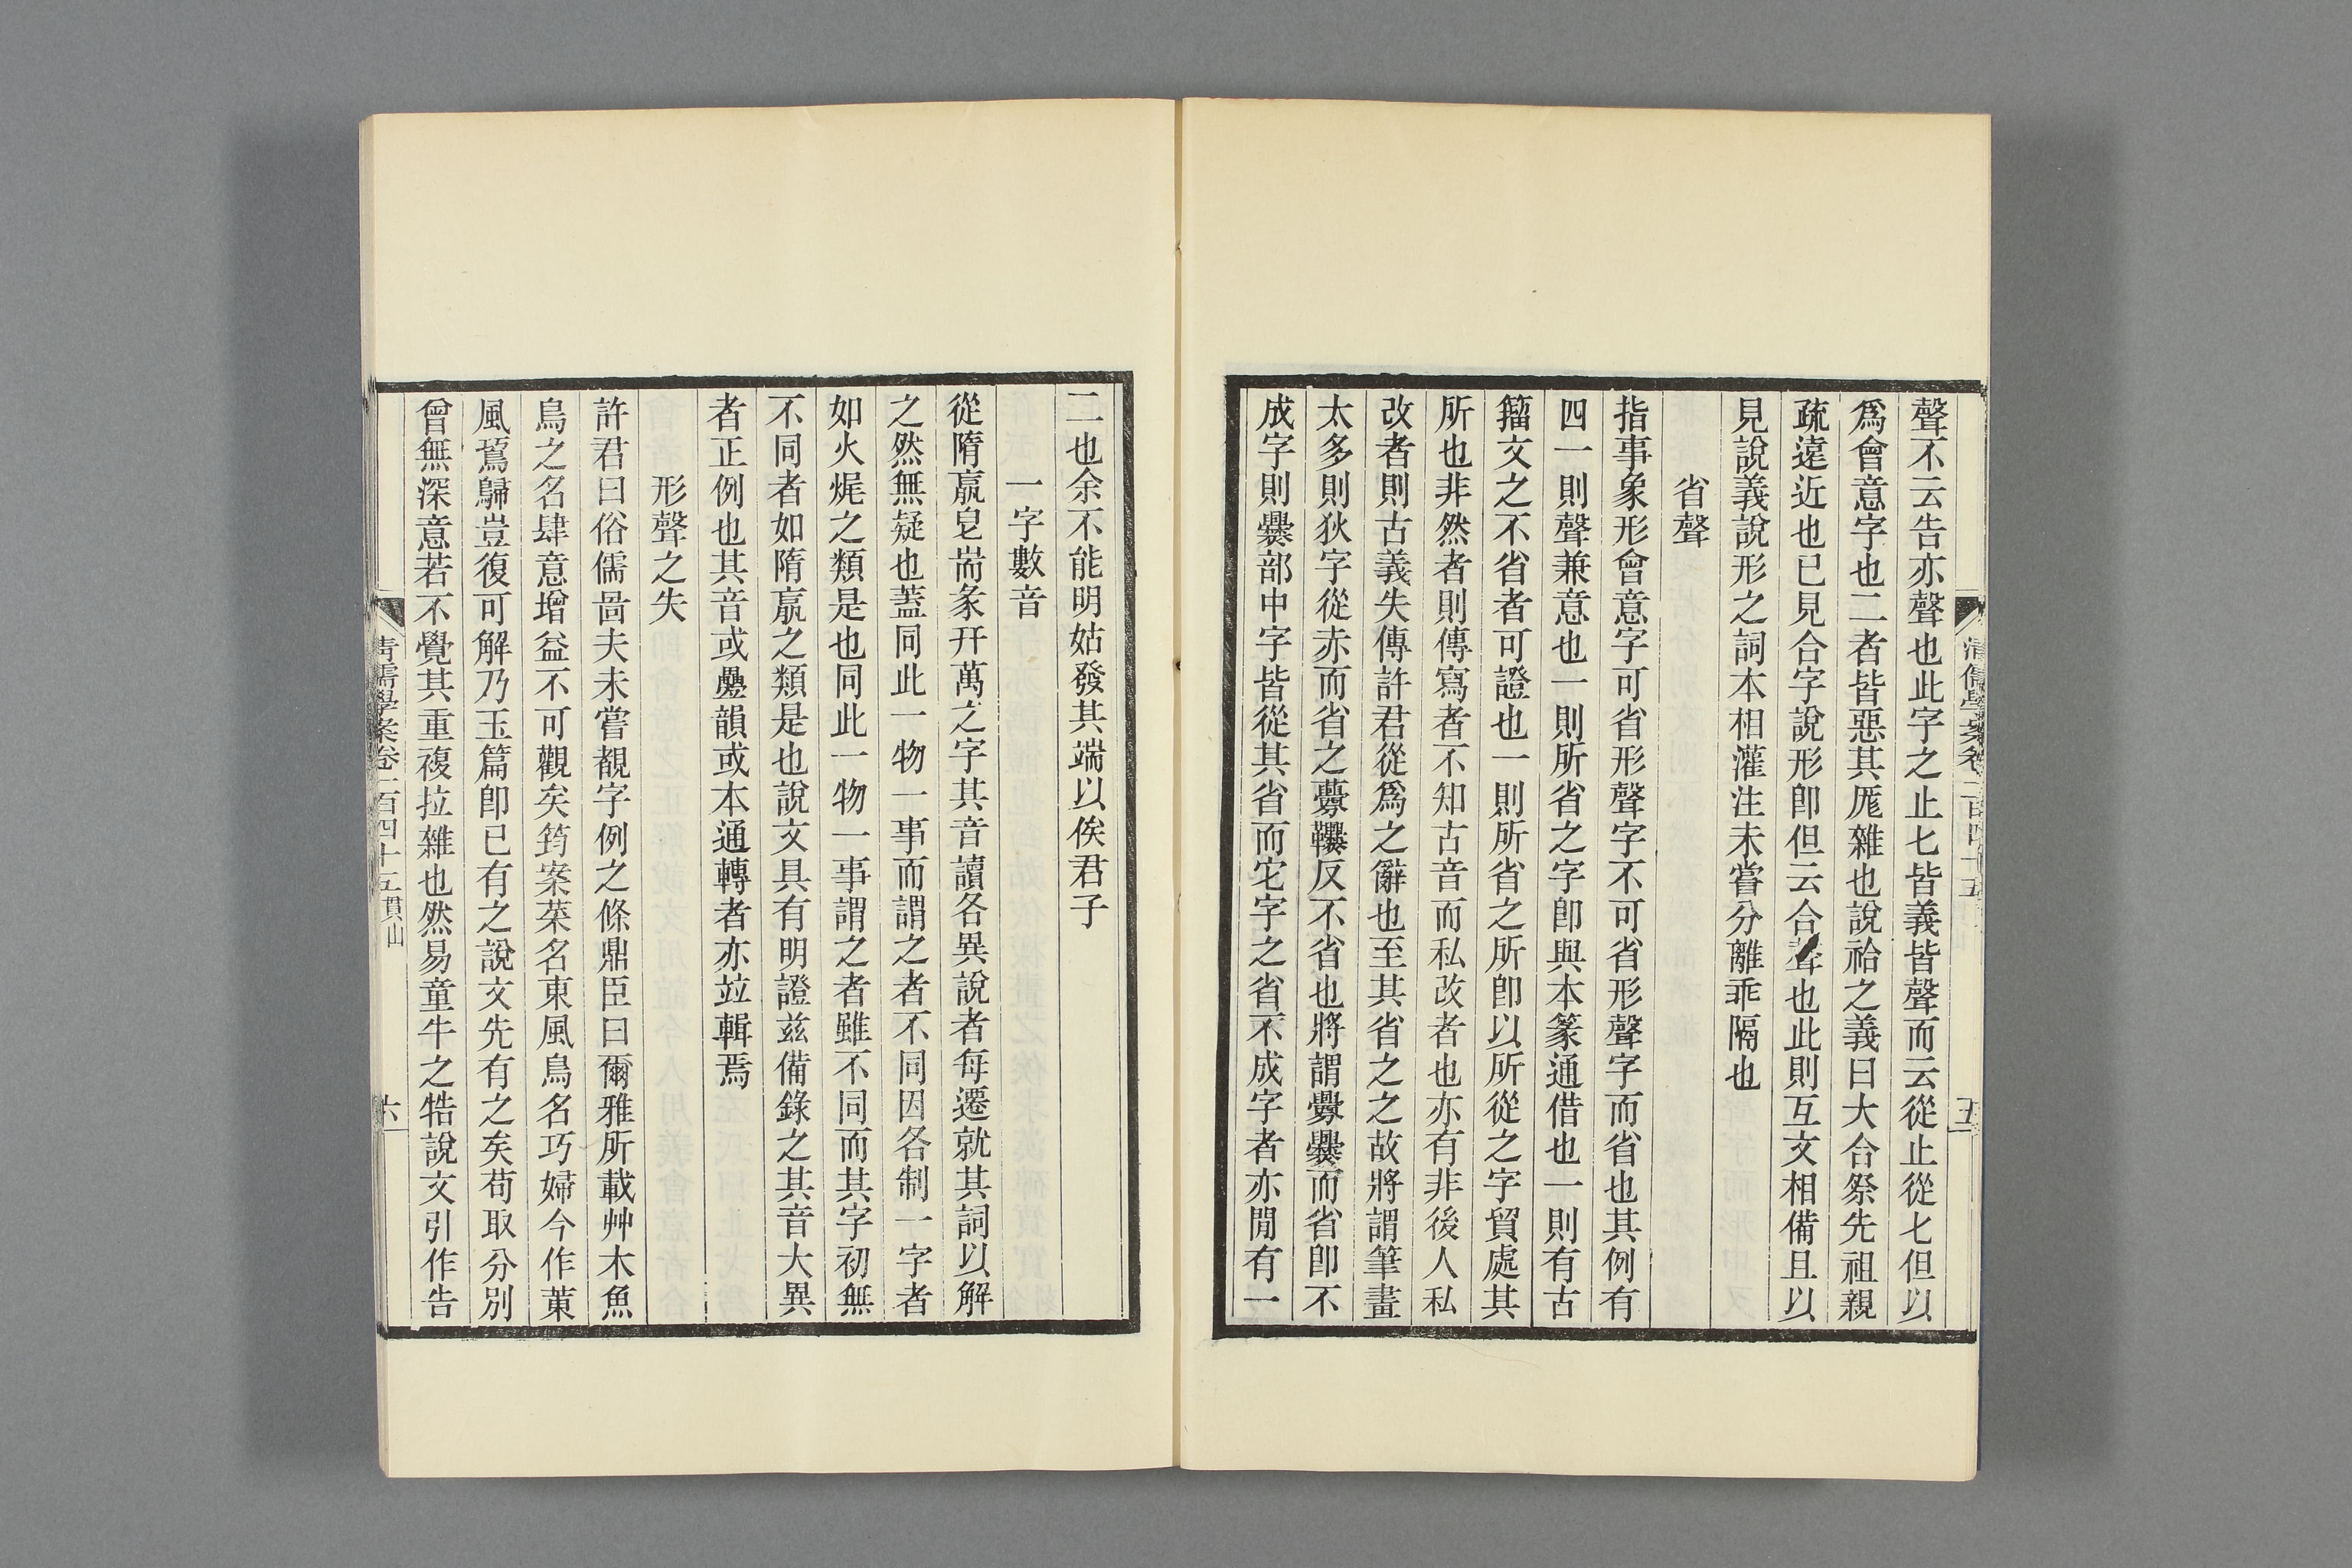 聲不云告亦聲也此字之止匕皆義皆聲而云從止從匕但以
爲會意字也二者皆惡其厖雜也說祫之義曰大合祭先祖親
疏遠近也已見合字說形卽但云合聲也此則互文相備且以
見說義說形之詞本相灌注未嘗分離乖隔也
省聲
指事象形會意字可省形聲字不可省形聲字而省也其例有
四一則聲兼意也一則所省之字卽與本篆通借也一則有古
籀文之不省者可證也一則所省之所卽以所從之字貿處其
所也非然者則傳寫者不知古音而私改者也亦有非後人私
改者則古義失傳許君從爲之辭也至其省之之故將謂筆畫
太多則狄字從赤而省之㸑韄反不省也將謂釁爨而省卽不
成字則爨部中字皆從其省而它字之省不成字者亦閒有一
二也余不能明姑發其端以俟君子
一字數音
從隋嬴皂耑彖幵萬之字其音讀各異說者每遷就其詞以解
之然無疑也蓋同此一物一事而謂之者不同因各制一字者
如火焜之類是也同此一物一事謂之者雖不同而其字初無
不同者如隋嬴之類是也說文具有明證茲備錄之其音大異
者正例也其音或疊韻或本通轉者亦竝輯焉
形聲之失
許君曰俗儒啚夫未嘗覩字例之條鼎臣曰爾雅所載艸木魚
鳥之名肆意增益不可觀矣筠案菜名東風鳥名巧婦今作菄
風鳸鷝豈復可解乃玉篇卽已有之說文先有之矣苟取分別
曾無深意若不覺其重複拉雜也然易童牛之牿說文引作告
清儒學案卷一百四十五
五
清儒學案卷一百四十五 貫山
六